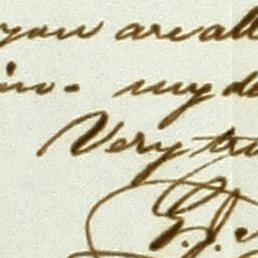 you are all
my de
Very tru